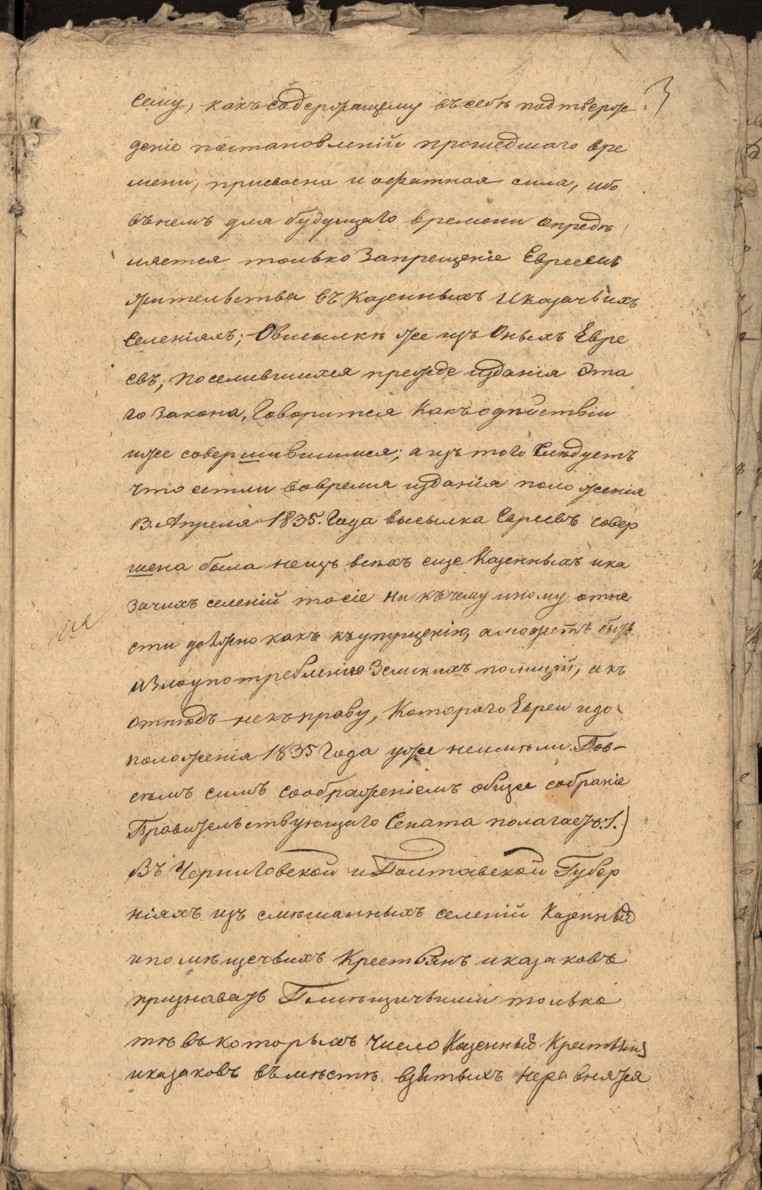 сему, какъ содержащему въ себѣ подтверж 3
деніе постановленій прошедшаго вре
мени, присвоена и обратная сила, ибо
въ немъ для будущаго времени опредѣ
ляется только запрещеніе Евреевъ
жительства въ казенныхъ и казачьихъ
селеніяхъ; - О высылкѣ же изъ оныхъ Евре
евъ, поселившихся прежде изданія Эта
го закона, Говорится какъ о дѣйствіи
уже совершившимся; а изъ того слѣдуетъ
что естли во время изданія положенія
13. Апреля 1835. Года высылка Евреевъ совер
шена была не изъ всѣхъ еще казенныхъ и ка
зачихъ селеній то сіе ни къ чему иному отне
сти должно какъ къ упущенію, а можетъ быть
и злоупотребленію Земскихъ полицій, а къ
отнюдъ не къ праву, Котораго Евреи и до
положенія 1835 Года уже не имѣли. По в-
сѣмъ симъ соображеніемъ общее собраніе
Правительствующаго Сената полагаетъ: 1.)
Въ Черниговской и Полтавской Губер
ніяхъ изъ смѣшанныхъ селеній Казенныхъ
и помѣщечьихъ Крестьянъ и казаковъ
признавать Помѣщичьими только
тѣ въ которыхъ число Казенныхъ Крестьянъ
и казаковъ въ мѣстѣ взятыхъ неравняятся